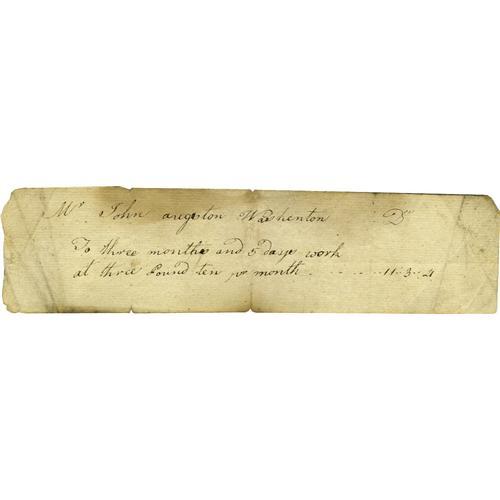 Mr John augston Washenton Dr
To three months and 5 days work
at three Pound ten pr month . . . . . . 11..3..4